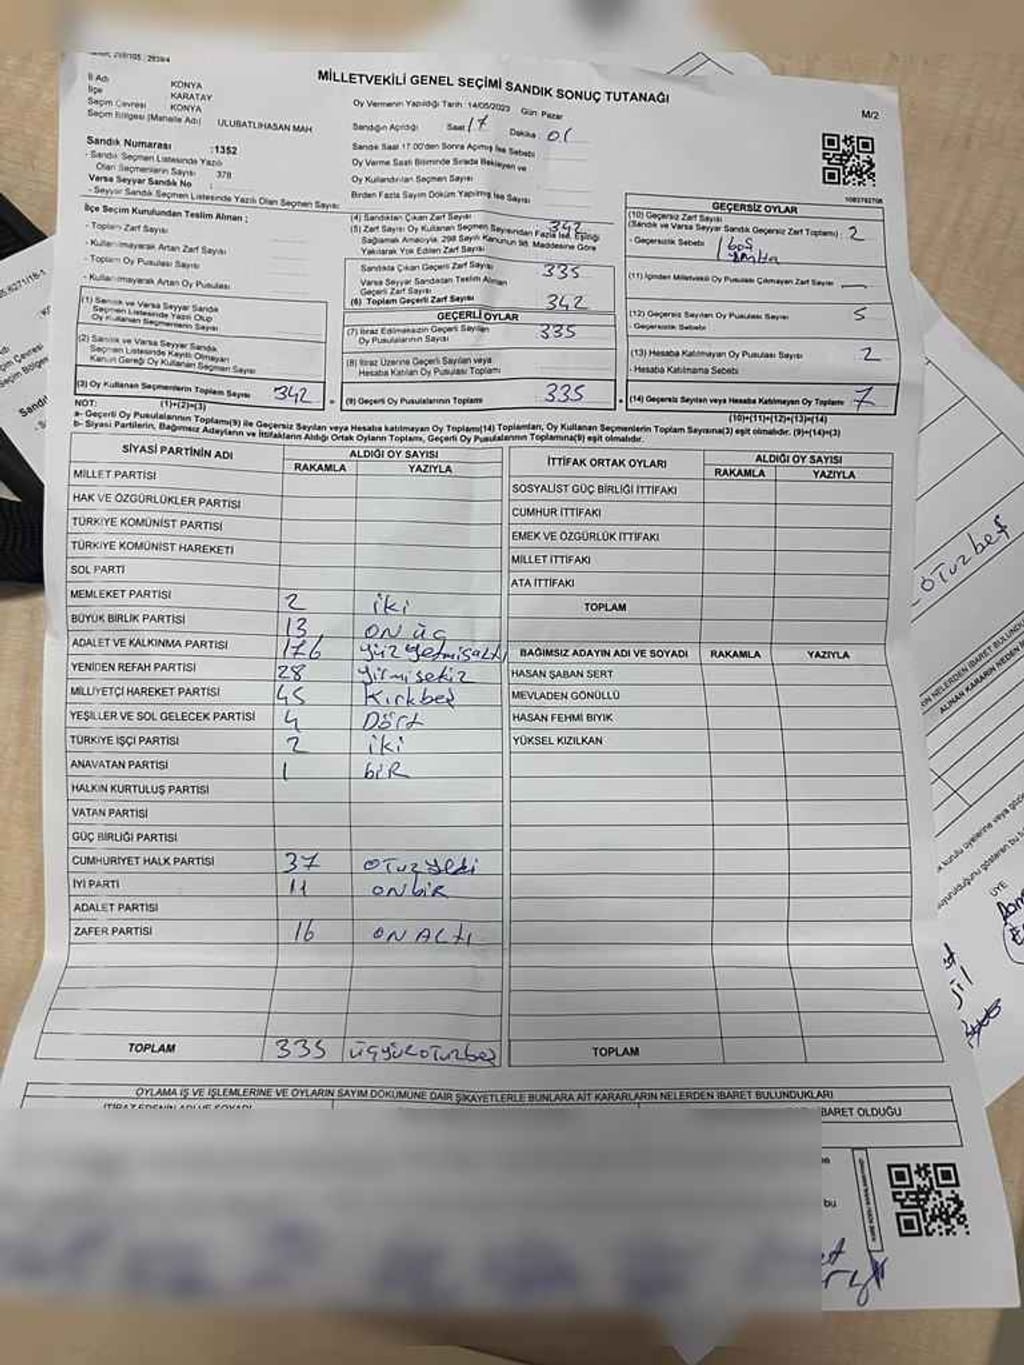 MİLLETVEKİLİ GENEL SEÇİMİ SANDIK SONUÇ TUTANAĞI
M/2
İl Adı KONYA
İlçe KARATAY
Seçim Çevresi KONYA
Seçim Bölgesi (Mahalle Adı) ULUBATLIHASAN MAH
Sandık Numarası :1352
- Sandık Seçmen Listesinde Yazılı
Olan Seçmenlerin Sayısı 378
Varsa Seyyar Sandık No :
- Seyyar Sandık Seçmen Listesinde Yazılı Olan Seçmen Sayısı:
Oy Vermenin Yapıldığı Tarih :14/05/2023 Gün Pazar
Sandığın Açıldığı Saat 17 Dakika : 01
Sandık Saat 17.00'den Sonra Açılmış İse Sebebi
Oy Verme Saati Bitiminde Sırada Bekleyen ve
Oy Kullandırılan Seçmen Sayısı
Birden Fazla Sayım Döküm Yapılmış İse Sayısı
İlçe Seçim Kurulundan Teslim Alınan ;
- Toplam Zarf Sayısı
- Kullanılmayarak Artan Zarf Sayısı
- Toplam Oy Pusulası Sayısı
- Kullanılmayarak Artan Oy Pusulası
(1) Sandık ve Varsa Seyyar Sandık
Seçmen Listesinde Yazılı Olup
Oy Kullanan Seçmenlerin Sayısı
(2) Sandık ve Varsa Seyyar Sandık
Seçmen Listesinde Kayıtlı Olmayan
Kanun Gereği Oy Kullanan Seçmen Sayısı
(3) Oy Kullanan Seçmenlerin Toplam Sayısı 342
(1)+(2)=(3)
(4) Sandıktan Çıkan Zarf Sayısı 342
(5) Zarf Sayısı Oy Kullanan Seçmen Sayısından Fazla İse, Eşitliği
Sağlamak Amacıyla, 298 Sayılı Kanunun 98. Maddesine Göre
Yakılarak Yok Edilen Zarf Sayısı
Sandıkta Çıkan Geçerli Zarf Sayısı 335
Varsa Seyyar Sandıktan Teslim Alınan
Geçerli Zarf Sayısı
(6) Toplam Geçerli Zarf Sayısı 342
GEÇERLİ OYLAR
(7) İtiraz Edilmeksizin Geçerli Sayılan
Oy Pusulalarının Sayısı 335
(8) İtiraz Üzerine Geçerli Sayılan veya
Hesaba Katılan Oy Pusulası Toplamı
(9) Geçerli Oy Pusulalarının Toplamı 335
GEÇERSİZ OYLAR
(10) Geçersiz Zarf Sayısı
(Sandık ve Varsa Seyyar Sandık Geçersiz Zarf Toplamı) : 2
- Geçersizlik Sebebi 1 boş
(11) İçinden Milletvekili Oy Pusulası Çıkmayan Zarf Sayısı —
(12) Geçersiz Sayılan Oy Pusulası Sayısı 5
- Geçersizlik Sebebi
(13) Hesaba Katılmayan Oy Pusulası Sayısı 2
- Hesaba Katılmama Sebebi
(14) Geçersiz Sayılan veya Hesaba Katılmayan Oy Toplamı 7
(10)+(11)+(12)+(13)=(14)
NOT:
a- Geçerli Oy Pusulalarının Toplamı(9) ile Geçersiz Sayılan veya Hesaba katılmayan Oy Toplamı(14) Toplamları, Oy Kullanan Seçmenlerin Toplam Sayısına(3) eşit olmalıdır. (9)+(14)=(3)
b- Siyasi Partilerin, Bağımsız Adayların ve İttifakların Aldığı Ortak Oyların Toplamı, Geçerli Oy Pusulalarının Toplamına(9) eşit olmalıdır.
SİYASİ PARTİNİN ADI ALDIĞI OY SAYISI
RAKAMLA YAZIYLA
MİLLET PARTİSİ
HAK VE ÖZGÜRLÜKLER PARTİSİ
TÜRKİYE KOMÜNİST PARTİSİ
TÜRKİYE KOMÜNİST HAREKETİ
SOL PARTİ
MEMLEKET PARTİSİ 2 iki
BÜYÜK BİRLİK PARTİSİ 13 ON ÜÇ
ADALET VE KALKINMA PARTİSİ 176 yüz yetmişaltı
YENİDEN REFAH PARTİSİ 28 yirmisekiz
MİLLİYETÇİ HAREKET PARTİSİ 45 Kırkbeş
YEŞİLLER VE SOL GELECEK PARTİSİ 4 Dört
TÜRKİYE İŞÇİ PARTİSİ 2 iki
ANAVATAN PARTİSİ 1 bİR
HALKIN KURTULUŞ PARTİSİ
VATAN PARTİSİ
GÜÇ BİRLİĞİ PARTİSİ
CUMHURİYET HALK PARTİSİ 37 OTUZ yedi
İYİ PARTİ 11 ONbİR
ADALET PARTİSİ
ZAFER PARTİSİ 16 ON ALTI
TOPLAM 335 üçyüzOTUzbeş
İTTİFAK ORTAK OYLARI ALDIĞI OY SAYISI
RAKAMLA YAZIYLA
SOSYALİST GÜÇ BİRLİĞİ İTTİFAKI
CUMHUR İTTİFAKI
EMEK VE ÖZGÜRLÜK İTTİFAKI
MİLLET İTTİFAKI
ATA İTTİFAKI
TOPLAM
BAĞIMSIZ ADAYIN ADI VE SOYADI RAKAMLA YAZIYLA
HASAN ŞABAN SERT
MEVLADEN GÖNÜLLÜ
HASAN FEHMİ BIYIK
YÜKSEL KIZILKAN
TOPLAM
OYLAMA İŞ VE İŞLEMLERİNE VE OYLARIN SAYIM DÖKÜMÜNE DAİR ŞİKAYETLERLE BUNLARA AİT KARARLARIN NELERDEN İBARET BULUNDUKLARI
BARET OLDUĞU
bu
OTuzbeş
ÜYE